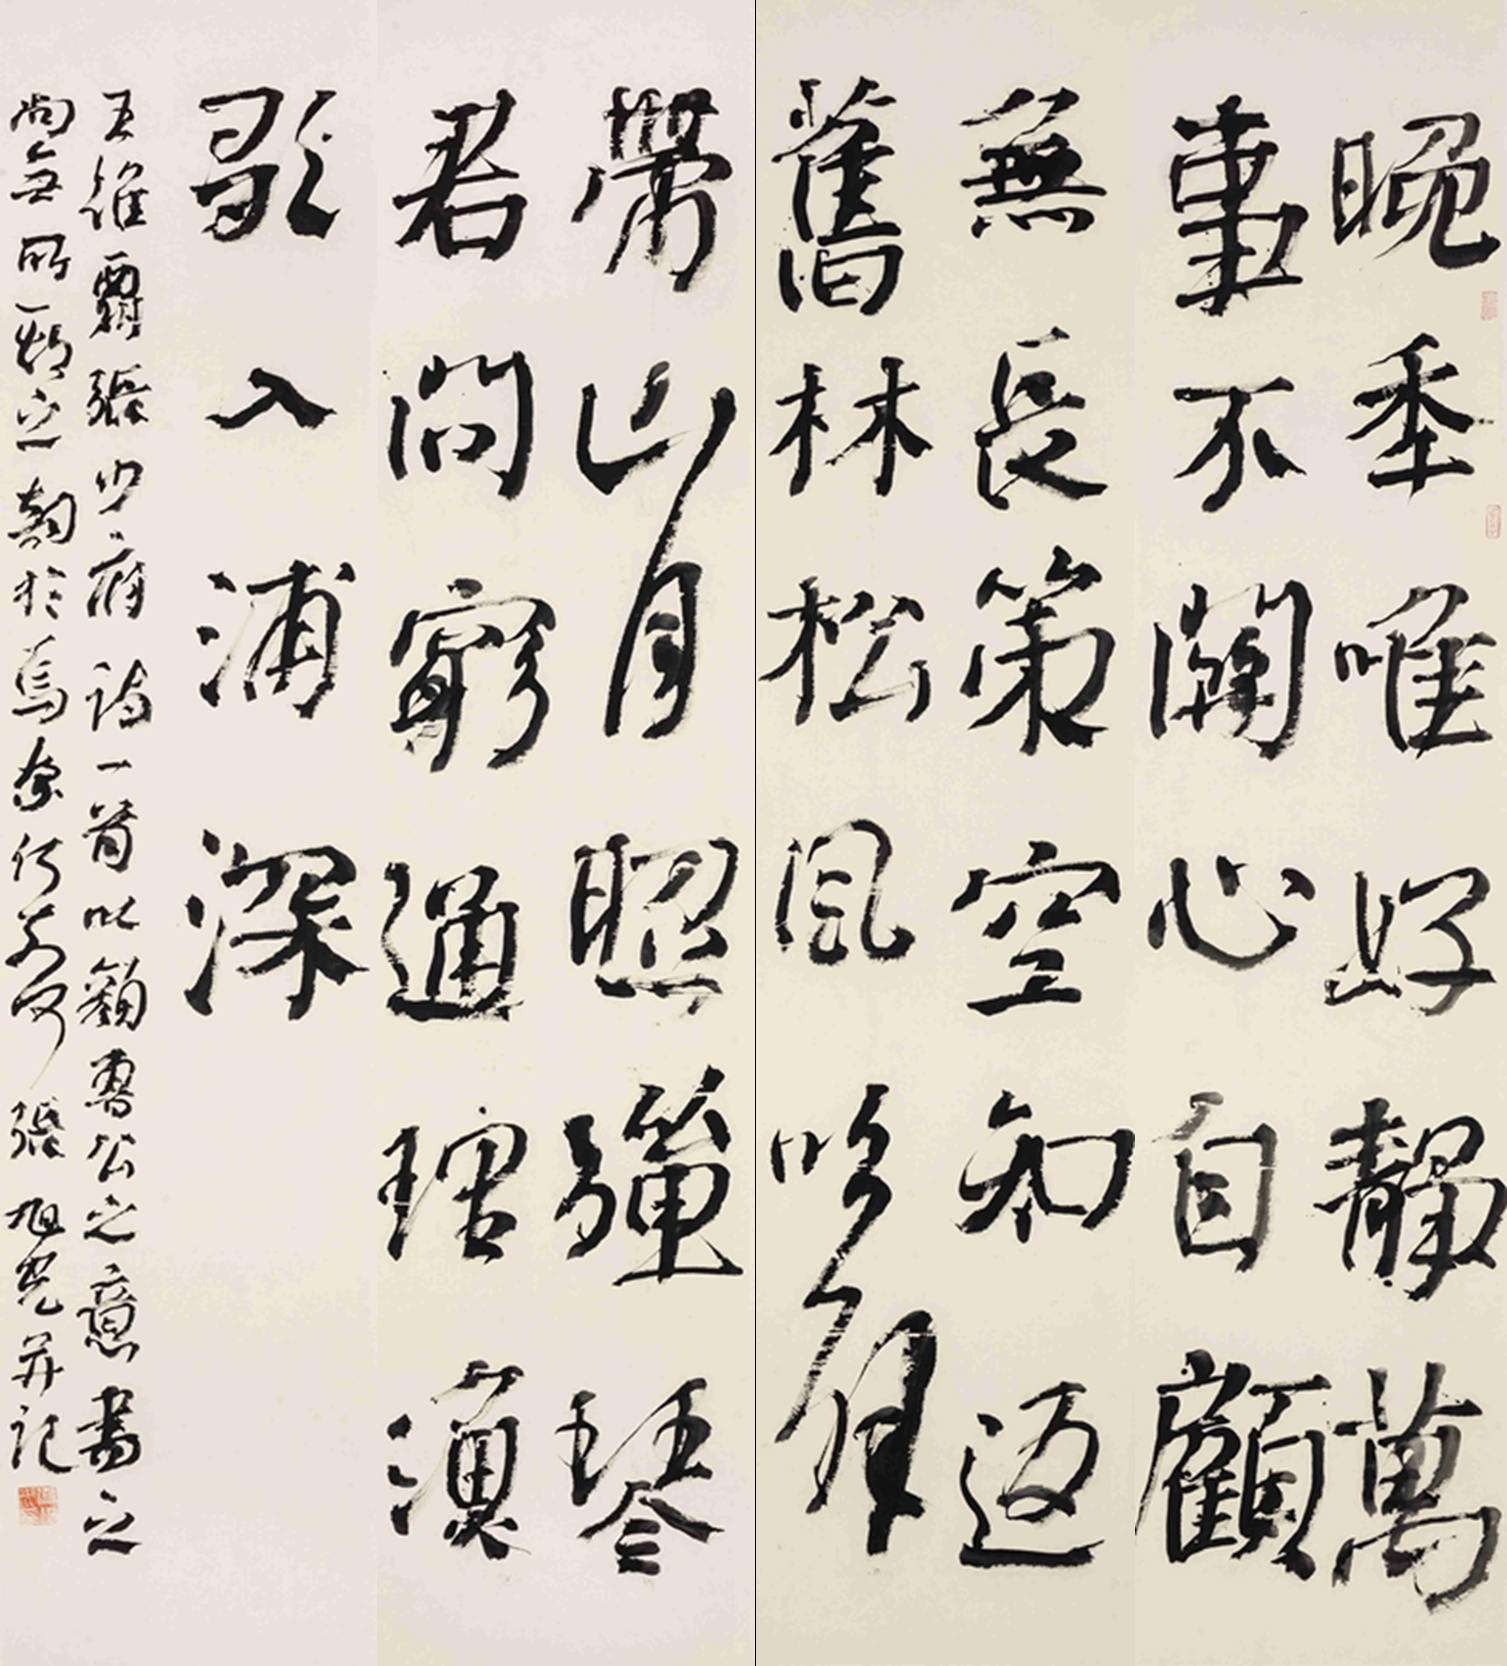 晚秊唯好靜萬
事不關心自顧
無長策空知返
舊林松風吹解
帶山月照彈琴
君問窮通理漁
歌入浦深
王維張少府詩一首以顏魯公之意書之
尚無所之韵於焉奈何奈何張旭光并記